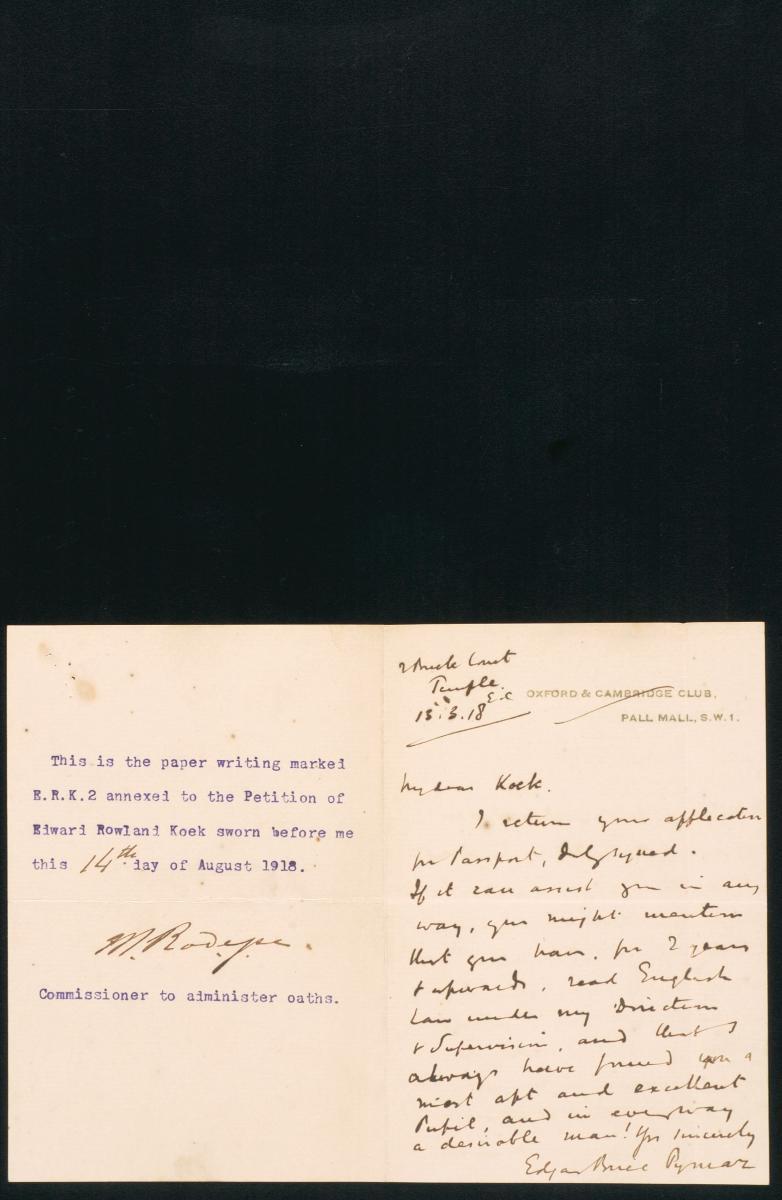 This is the paper writing marked
E.R.K.2 annexed to the Petition of
Edward Rowland Koek sworn before me
this 14th day of August 1918.
Commissioner to administer oaths.
2 Brick Court
Temple
E.C
OXFORD & CAMBRIDGE CLUB,
PALL MALL, S.W.1.
13.3.18
My dear Koek.
I return your application
for Passport, duly signed.
If it can assist you in any
way, you might mention
that you have, for 2 years
& upwards, read English
Law under my Direction
& Supervision, and that I
always have found you a
most apt and excellent
Pupil, and in every way
a desirable man! Yrs sincerely
Edgar Brice